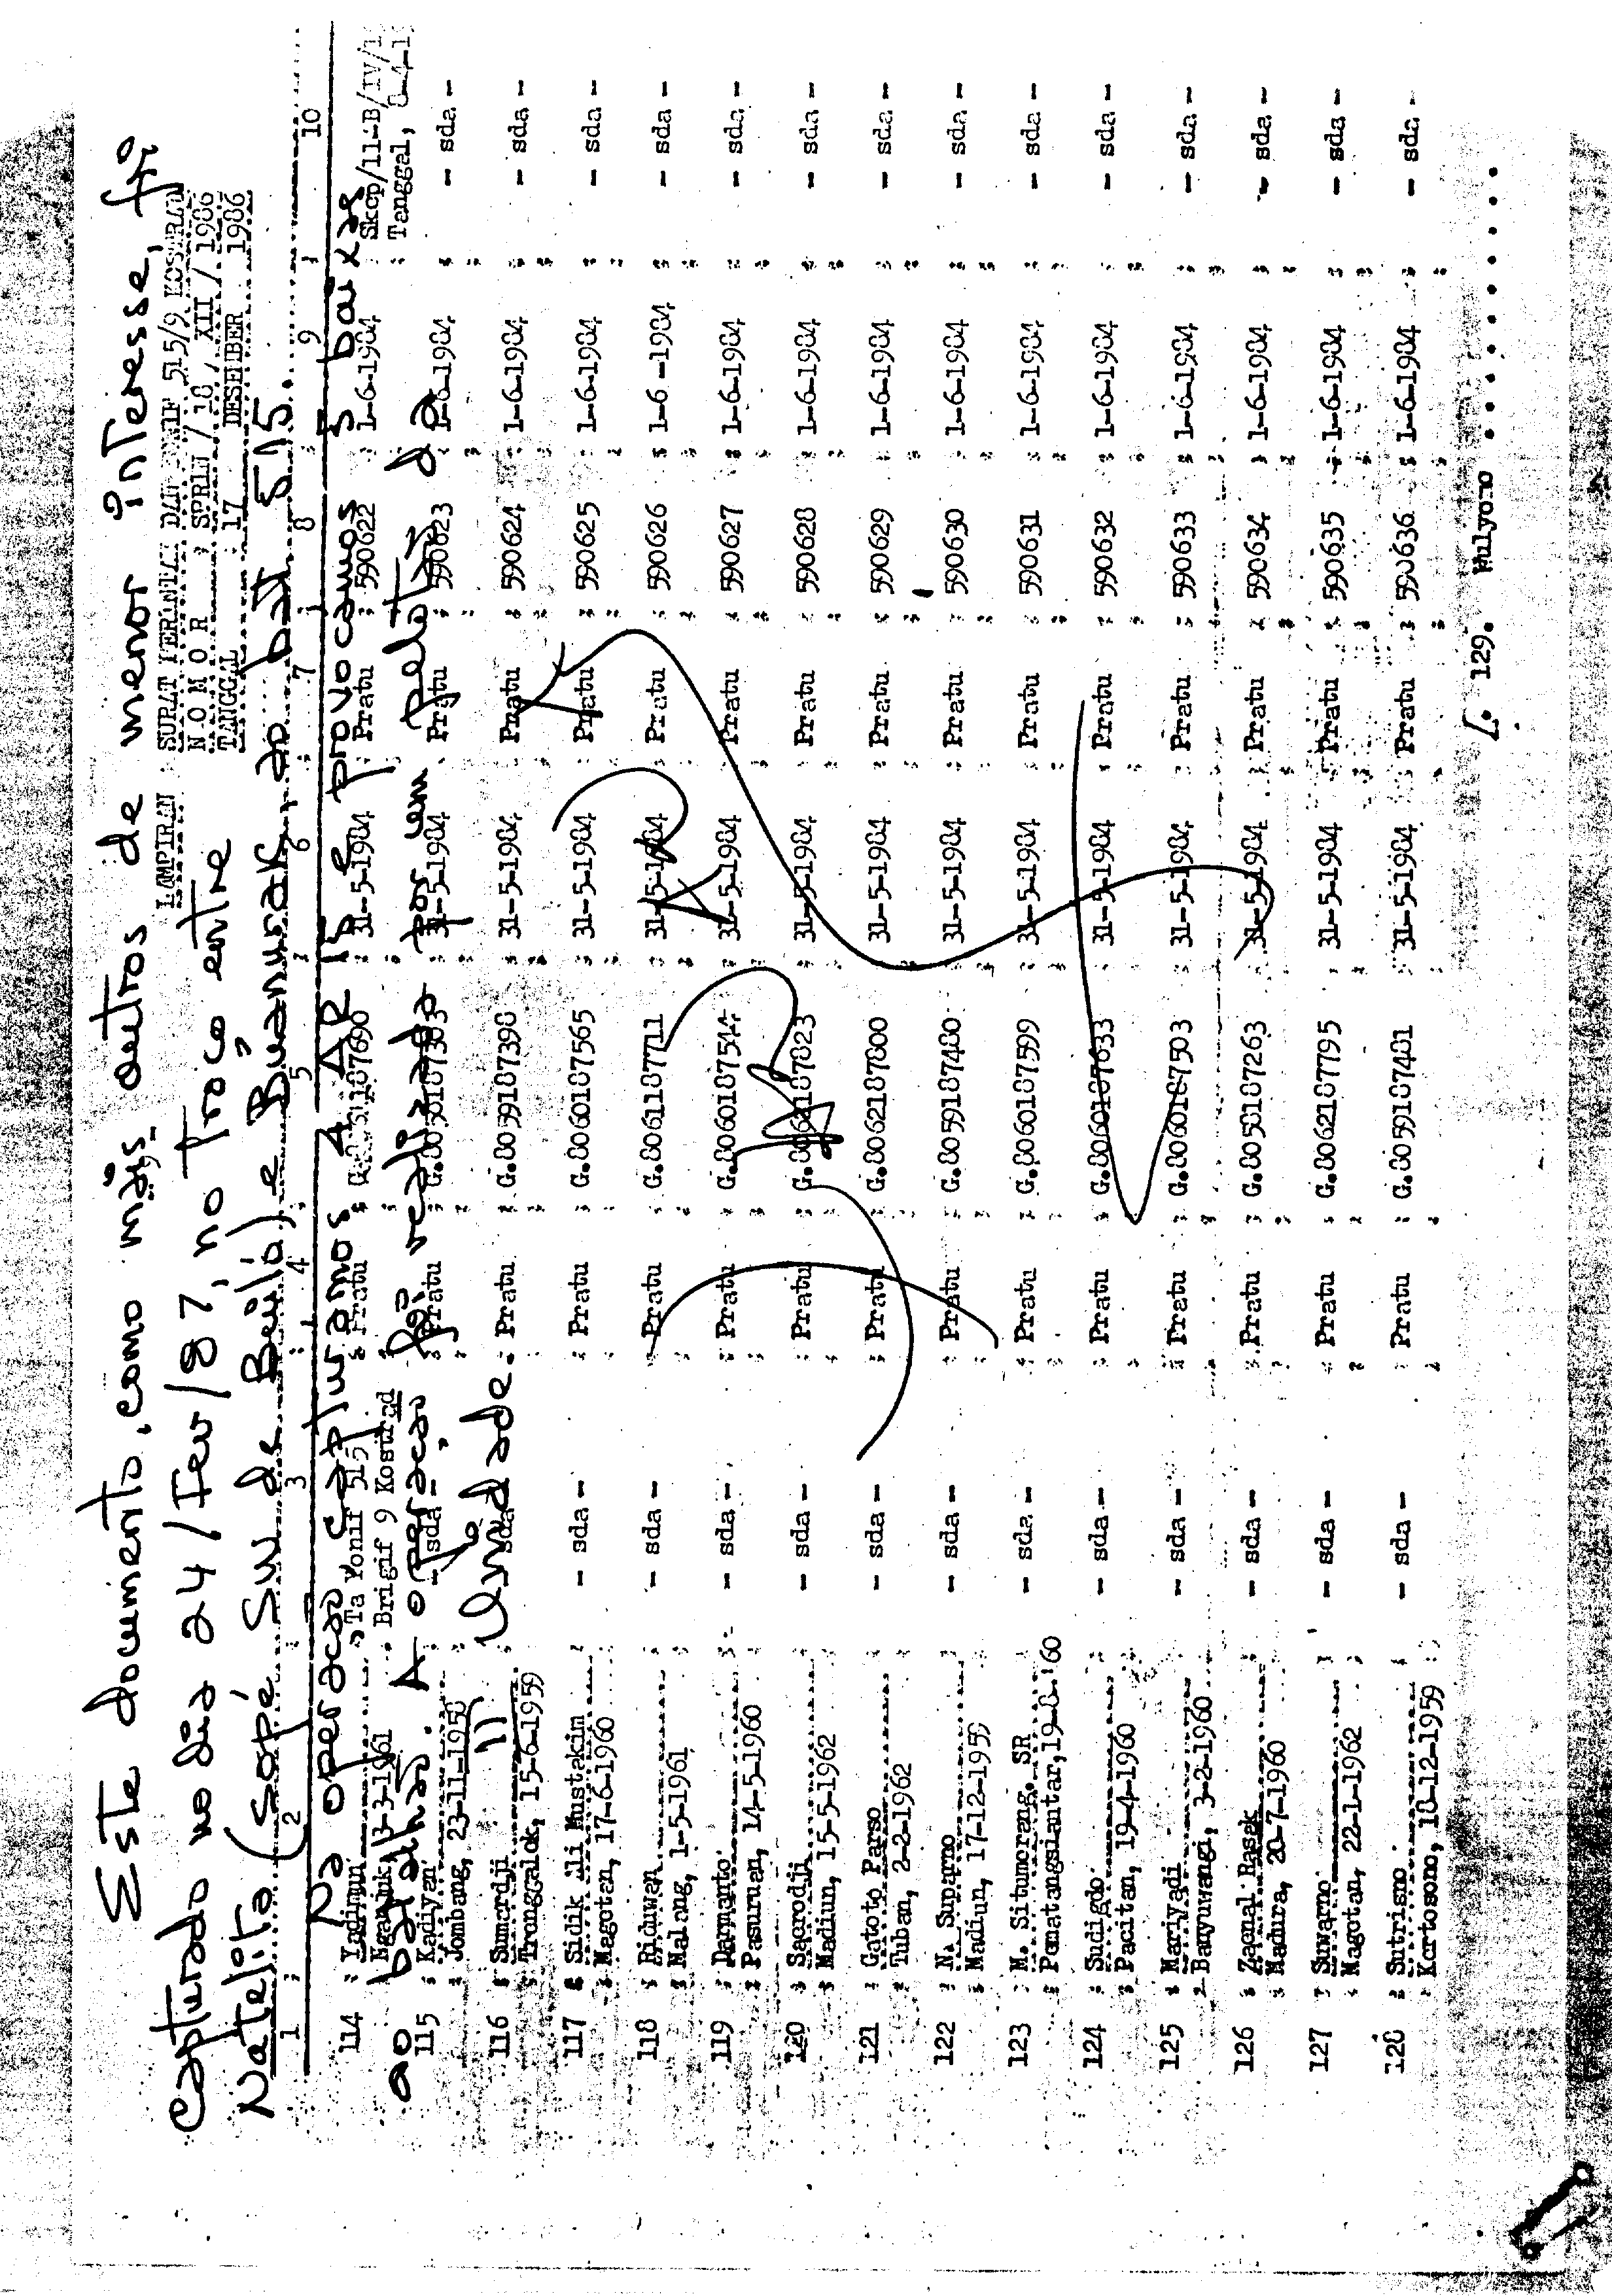 Este documento, como mais outros de menor interesse, foi
capturado no dia 24/Fev/87, no troço entre
Natelita (sopé Sul de Builó) e Buanurak ao bat 515.
Na operação capturamos 4 AR 15 e provocamos 5 baixas
ao batalhão. A operação foi realizada por um pelotão da
Unidade.
LAMPIRAN SURAT PERINTAH DAN YONIF 515/9 KOSTRAD
NOMOR : SPRIN / 18 / XII / 1986
TANGGAL 17 DESEMBER 1986
1 2 3 4 5 6 7 8 9 10
114 Ta Yonif 515 Pratu 31-5-1984 Pratu 590622 1-6-1984 Skep/
Nganjuk, 13-3-1961 Brigif 9 Kostrad Tanggal,
115 Kadiyan - sda - Pratu 31-5-1984 Pratu 590623 1-6-1984 - sda -
Jombang, 23-11-1958
116 Sumardji sda Pratu G.8059187398 31-5-1984 Pratu 590624 1-6-1984 - sda -
Trenggalek, 15-6-1959
117 Sidik Ali Mustakim - sda - Pratu G.8060187565 31-5-1984 Pratu 590625 1-6-1984 - sda -
Magetan, 17-6-1960
118 Riduwan - sda - Pratu G.8061187711 31-5-1984 Pratu 590626 1-6-1984 - sda -
Malang, 1-5-1961
119 Darmanto - sda - Pratu G.8060187544 31-5-1984 Pratu 590627 1-6-1984 - sda -
Pasuruan, 14-5-1960
120 Saerodji - sda - Pratu G.8062187823 31-5-1984 Pratu 590628 1-6-1984 - sda -
Madiun, 15-5-1962
121 Gatoto Parso - sda - Pratu G.8062187800 31-5-1984 Pratu 590629 1-6-1984 - sda -
Tuban, 2-2-1962
122 N. Suparno - sda - Pratu G.8059187480 31-5-1984 Pratu 590630 1-6-1984 - sda -
Madiun, 17-12-1959
123 M. Situmorang. SR - sda - Pratu G.8060187599 31-5-1984 Pratu 590631 1-6-1984 - sda -
Pematangsiantar, 19-8-'60
124 Sudigdo - sda - Pratu G.8060187633 31-5-1984 Pratu 590632 1-6-1984 - sda -
Pacitan, 19-4-1960
125 Mariyadi - sda - Pratu G.8060187503 31-5-1984 Pratu 590633 1-6-1984 - sda -
Banyuwangi, 3-2-1960
126 Zaenal Rasek - sda - Pratu G.8058187263 31-5-1984 Pratu 590634 1-6-1984 - sda -
Madura, 20-7-1960
127 Suwarno - sda - Pratu G.8062187795 31-5-1984 Pratu 590635 1-6-1984 - sda -
Magetan, 22-1-1962
128 Sutrisno - sda - Pratu G.8059187481 31-5-1984 Pratu 590636 1-6-1984 - sda -
Kertosono, 18-12-1959
/. 129. Mulyono ..............